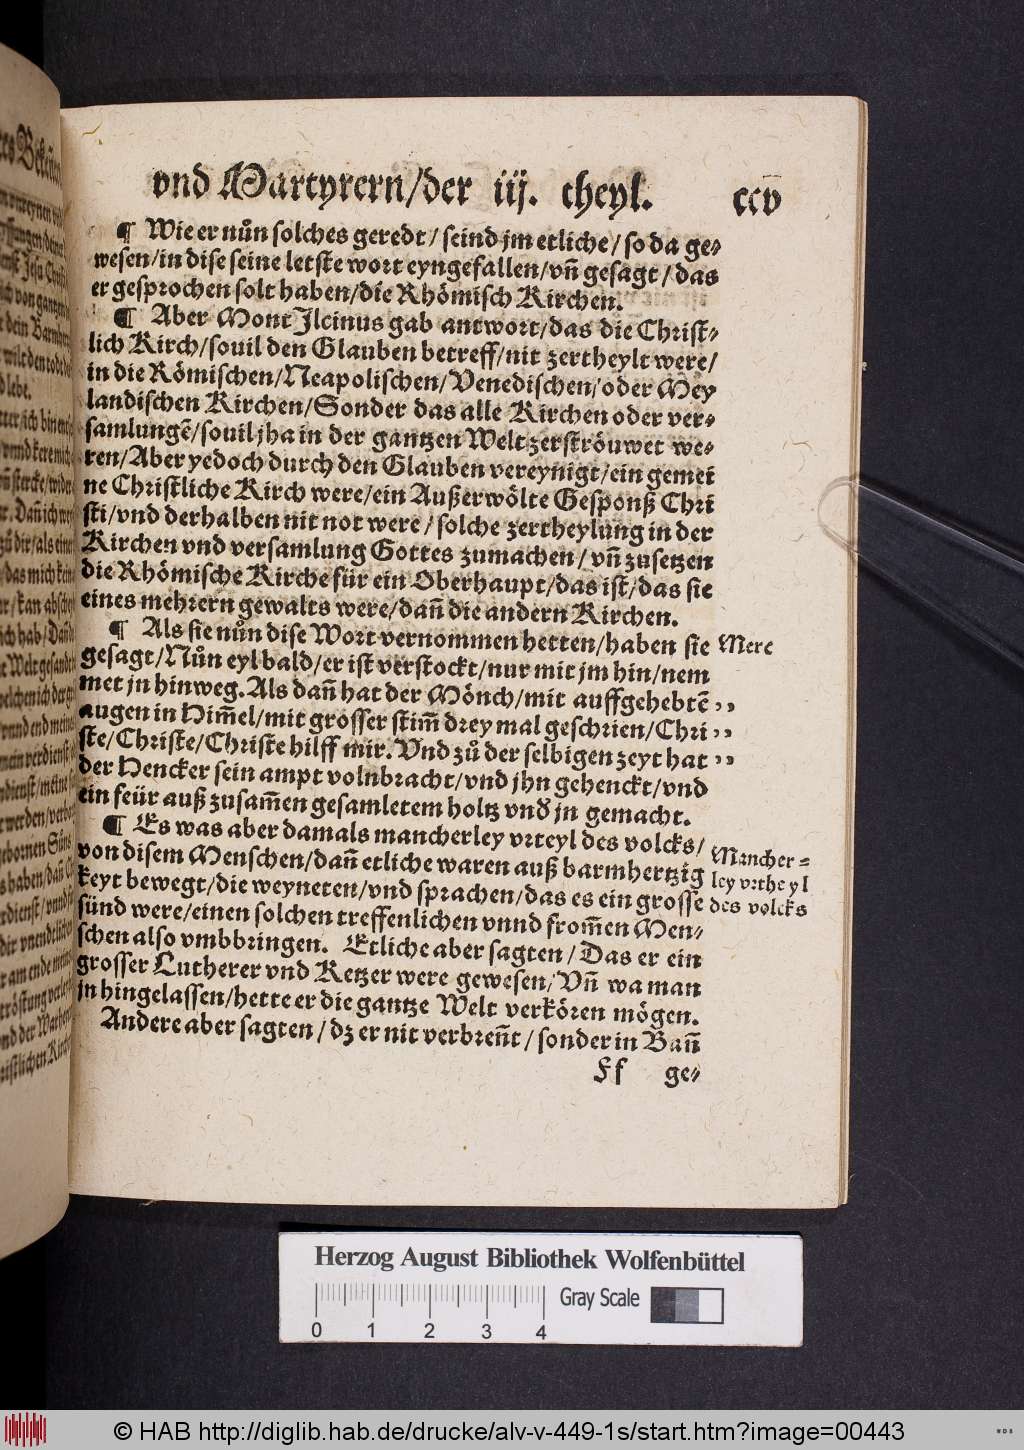 vnd Martyrern/der iij. theyl. ccv
¶ Wie er nůn solches geredt/ seind jm etliche/ so da ge⸗
wesen/in dise seine letste wort eyngefallen/vn̄ gesagt/das
er gesprochen solt haben/die Rhömisch Kirchen.
¶ Aber Mont Ilcinus gab antwort/das die Christ⸗
lich Kirch/souil den Glauben betreff/nit zertheylt were/
in die Römischen/Neapolischen/Venedischen/oder Mey
landischen Kirchen/Sonder das alle Kirchen oder ver⸗
samlungē/souil jha in der gantzen Welt zerströuwet we⸗
ren/Aber yedoch durch den Glauben vereynigt/ein gemei
ne Christliche Kirch were/ein Außerwölte Gesponß Chri
sti/vnd derhalben nit not were/ solche zertheylung in der
Kirchen vnd versamlung Gottes zumachen/ vn̄ zusetzen
die Rhömische Kirche für ein Oberhaupt/das ist/das sie
eines mehrern gewalts were/dan̄ die andern Kirchen.
¶ Als sie nůn dise Wort vernommen hetten/haben sie Merc
gesagt/Nůn eyl bald/er ist verstockt/nur mit jm hin/nem
met jn hinweg. Als dan̄ hat der Mönch/mit auffgehebtē ,,
augen in Him̄el/mit grosser stim̄ drey mal geschrien/Chri ,,
ste/Christe/Christe hilff mir. Vnd zů der selbigen zeyt hat ,,
der Hencker sein ampt volnbracht/vnd jhn gehenckt/vnd
ein feür auß zusam̄en gesamletem holtz vnd̕ jn gemacht.
¶ Es was aber damals mancherley vrteyl des volcks/ Mancher⸗
von disem Menschen/dan̄ etliche waren auß barmhertzig ley vrtheyl
keyt bewegt/die weyneten/vnd sprachen/das es ein grosse des volcks
sünd were/einen solchen treffenlichen vnnd from̄en Men⸗
schen also vmbbringen. Etliche aber sagten/ Das er ein
grosser Lutherer vnd Ketzer were gewesen/ Vn̄ wa man
jn hingelassen/hette er die gantze Welt verkören mögen.
Andere aber sagten/ dz er nit verbren̄t/ sonder in Ban̄
Ff ge⸗
Herzog August Bibliothek Wolfenbüttel
Gray Scale
0 1 2 3 4
© HAB http://diglib.hab.de/drucke/alv-v-449-1s/start.htm?image=00443